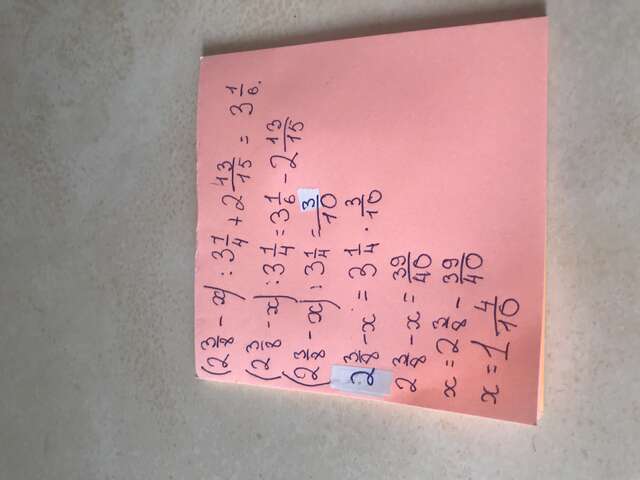 (2 3/8 - x) : 3 1/4 + 2 13/15 = 3 1/6.
(2 3/8 - x) : 3 1/4 = 3 1/6 - 2 13/15
(2 3/8 - x) : 3 1/4 = 3/10
2 3/8 - x = 3 1/4 · 3/10
2 3/8 - x = 39/40
x = 2 3/8 - 39/40
x = 1 4/10